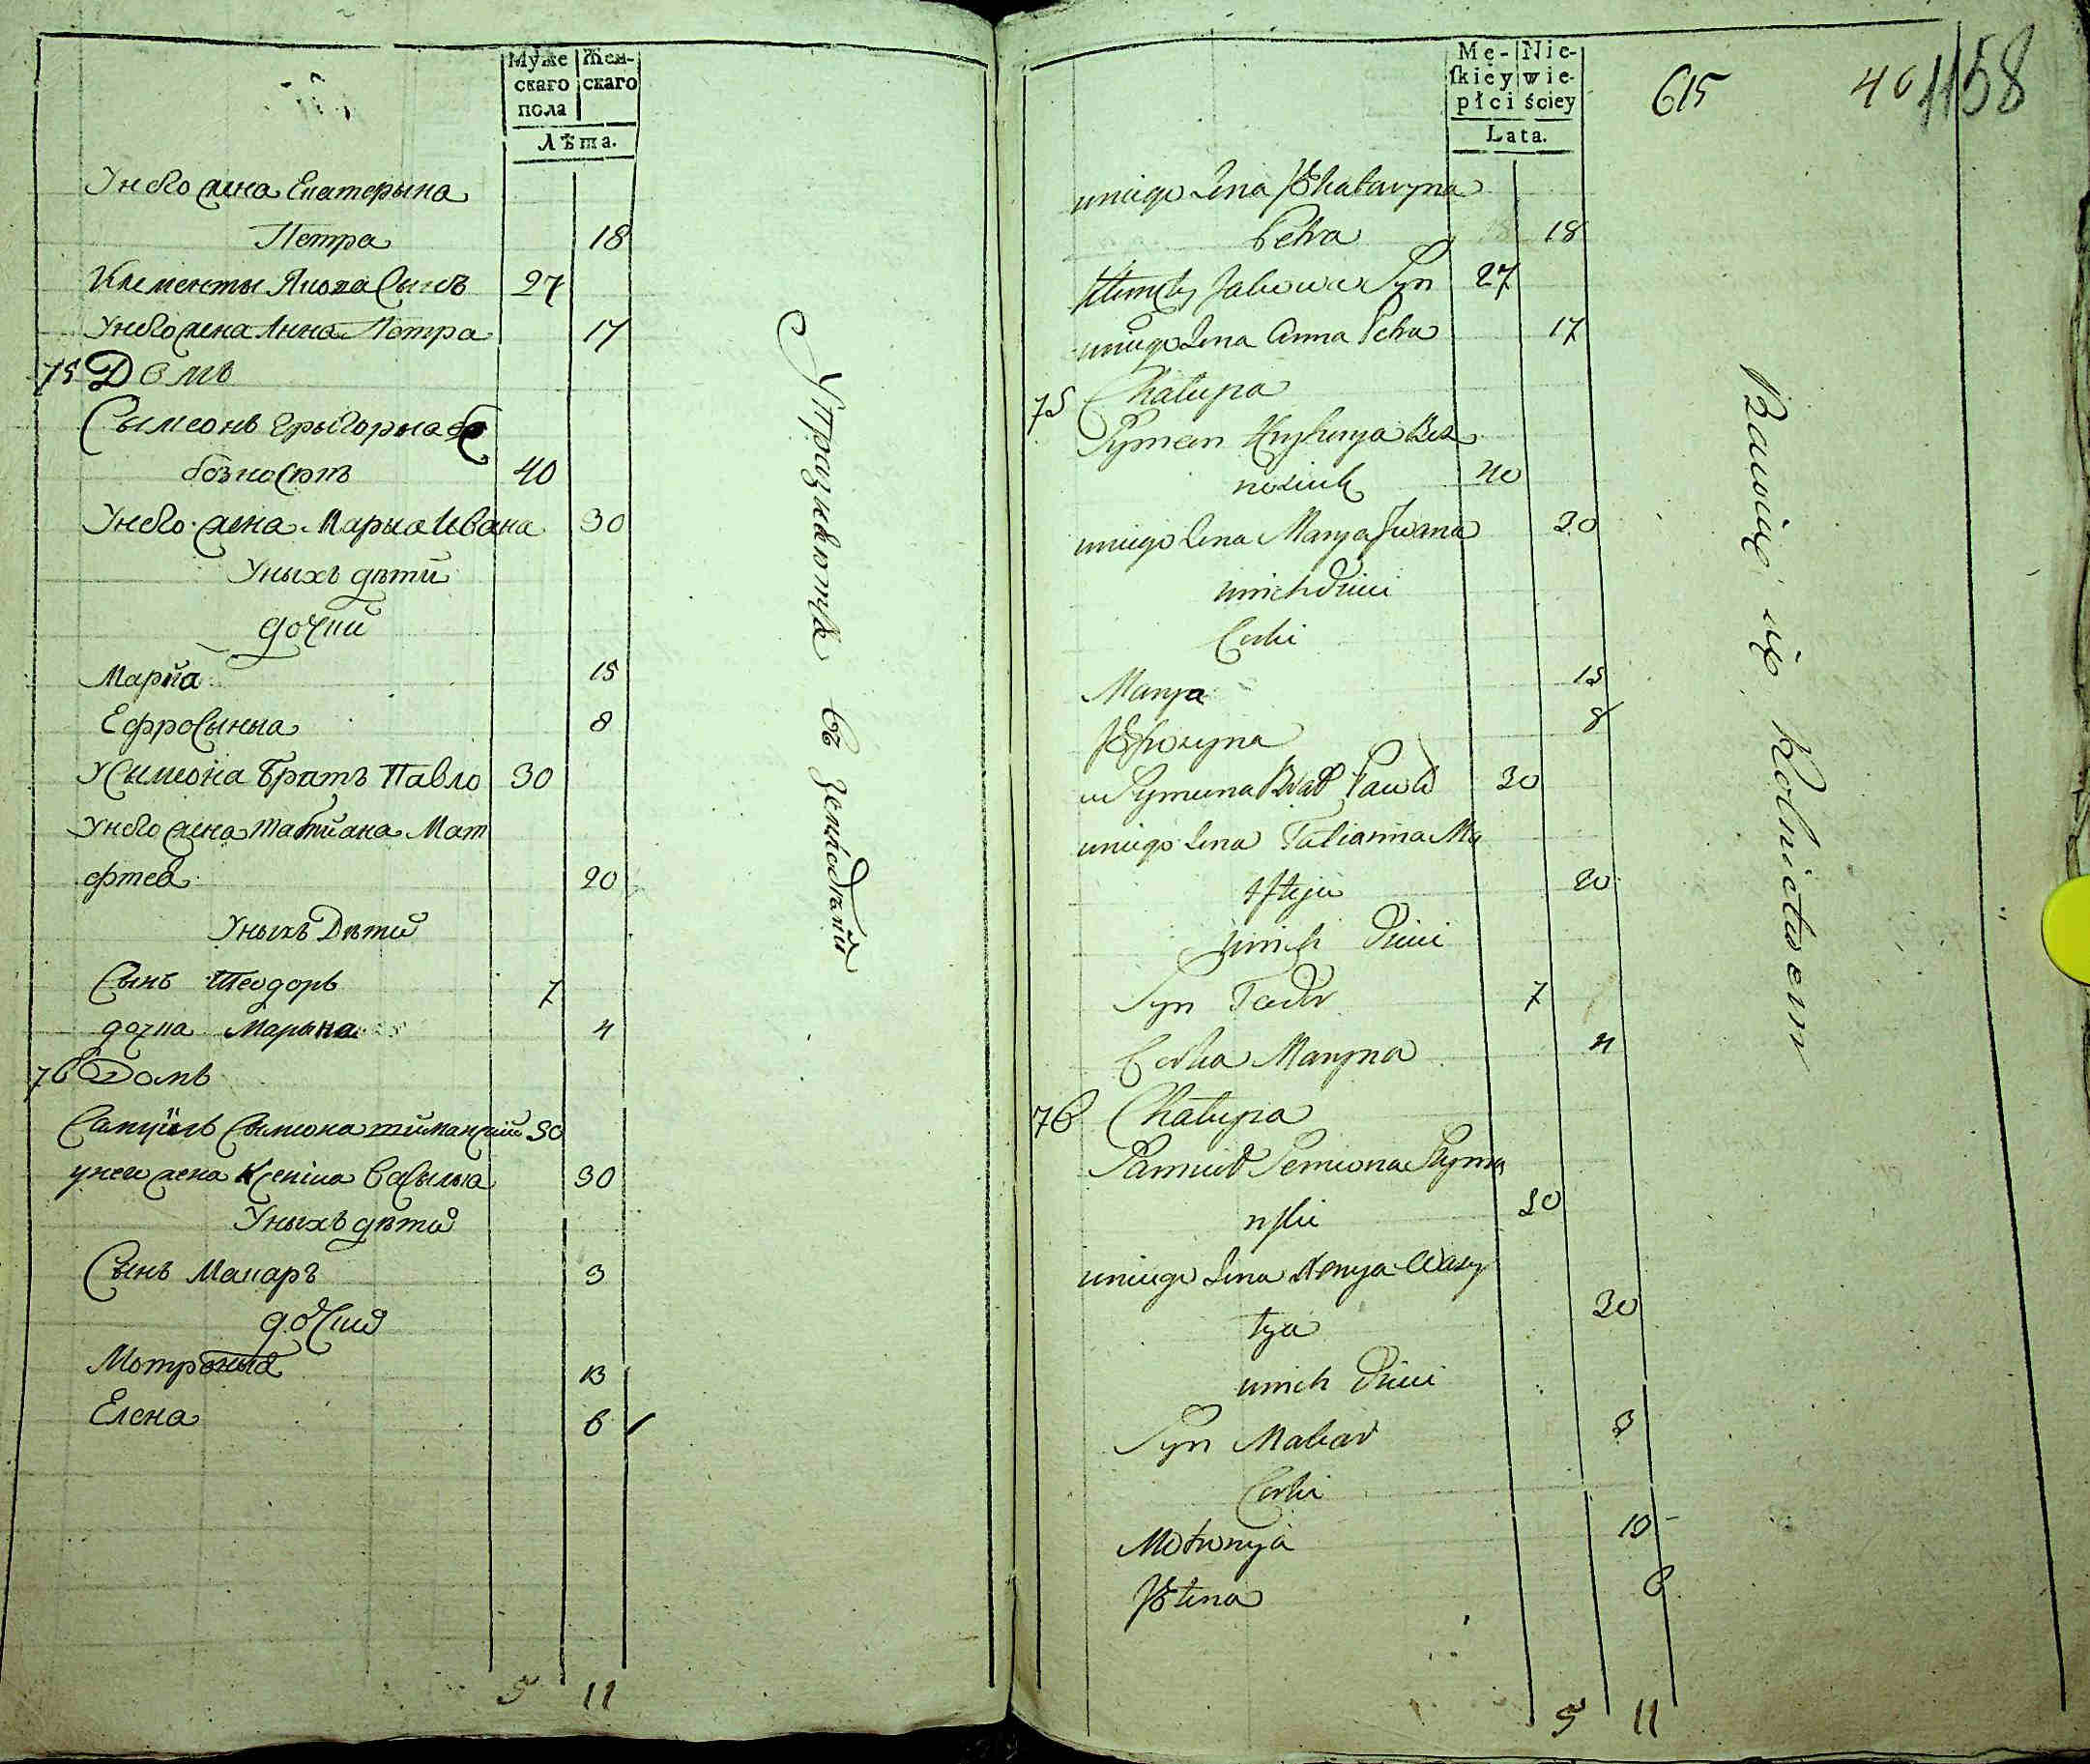 Муже
скаго
пола
Жен-
скаго
Лѣта.
Унего жена Екатерына
Петра 18
Клементы Якова Сынъ 27
Унего жена Анна Петра 17
75 Домъ
Сымеонъ Грыгорыа
бозносюкъ 40
Унего жена Марыа Ивана 30
Уныхъ дѣти
дочки
Марйа 15
Ефросыныа 8
У Сымеона братъ Павло 30
Унего жена Татиана Мат
фтеа 20
Уныхъ Дѣти
Сынъ Теодоръ 7
дочка Марына 4
76 Домъ
Самуилъ Сымеона 30
унего жена Ксеніиа Васылыа 30
Уныхъ дѣти
Сынъ Макаръ 3
дочки
Мотроныа 13
Елена 6
5 11
Упражняютъ въ земледѣлій
Mę-
skiey
płci
Nie-
wie-
ściey
Lata.
615 40 1158
uniego żena Jekataryna
Petra 18
Klimęty Jakowa Syn 27
uniego żena Anna Petra 17
75 Chałupa
Symeon Hryhorya Boz
nosiuk 40
uniego żena Marya Iwana 30
unich Dzieci
Corki
Marya 15
Jefrozyna 8
u Symeona Brat Pawło 30
uniego żena Tatianna Ma
tfteja 20
unich Dzieci
Syn Todor 7
Corka Maryna 4
76 Chałupa
Samuił Semiona Szyma
nskii 30
uniego żena Xenya Wasy
lya 30
unich Dzieci
Syn Makar 3
Corki
Motronya 13
Jełena 6
5 11
Bawią się Rolnictwem